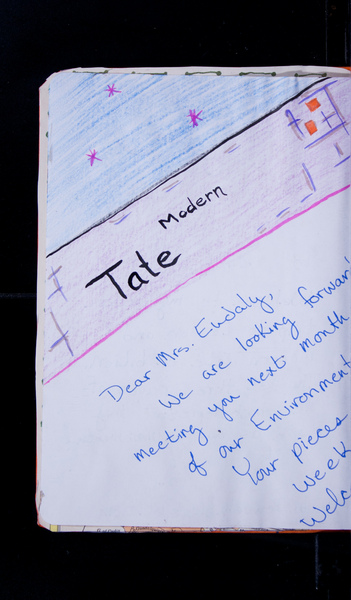 Modern
Tate
Dear Mrs. Ewdaly,
We are looking forwar
meeting you next month
of our Environment
Your pieces
week
Welc